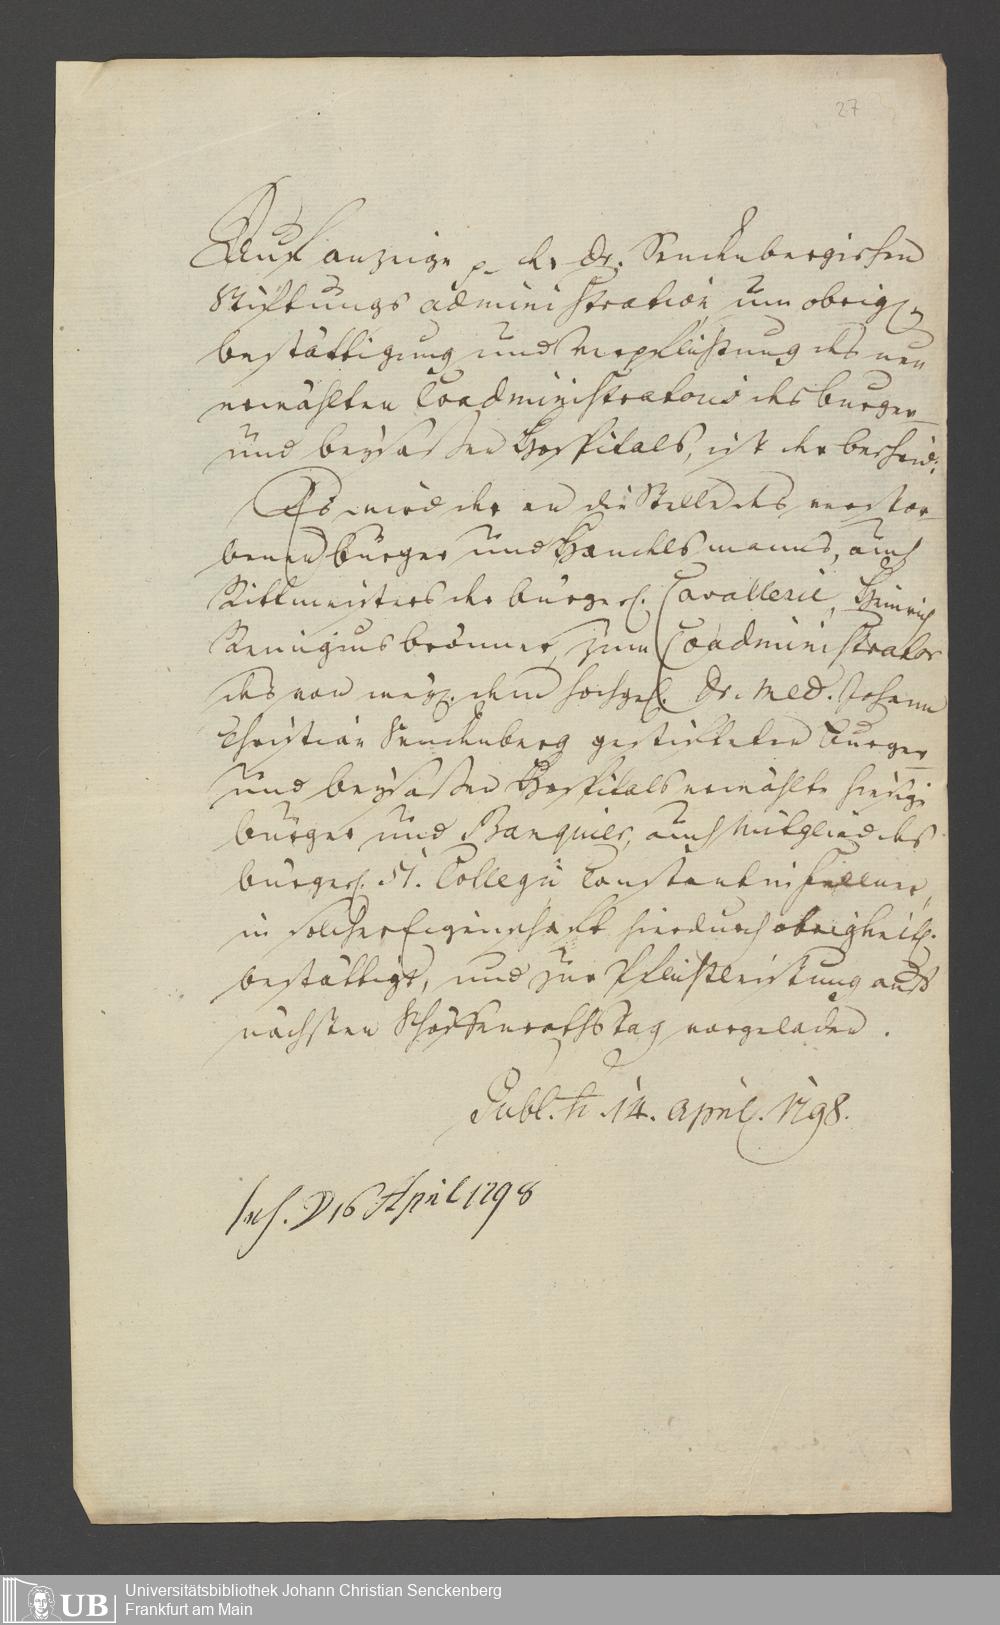 27
Auf anzeige p. der Dr. Senckenbergischen
Stiftungs administration um obrigl.
bestättigung und Verpflichtung des neu
erwählten Coadministratoris des burger
und beysassen Hospitals, ist der bescheid:
Es wird der an die Stelle des verstor-
benen burger und Handelsmanns, auch
Rittmeisters der burgerl. Cavallerie, Heinrich
Remigius brönner, zum Coadministrator
des von weyl. dem hochgel. Dr. Med. Johann
Christian Senckenberg gestifteten burger
und beysassen Hospitals erwählte hiesige
burger und Banquier, auch Mitglied des
burgerl. 51. Collegii Constantin Fellner,
in solcher Eigenschaft hierdurch obrigkeitl.
bestättigt, und zur Pflichtleistung auf
nächsten Schöffenrathstag vorgeladen.
Publ. ♄ 14. April. 1798.
Ins. ☽ 16 April 1798
UB
Universitätsbibliothek Johann Christian Senckenberg
Frankfurt am Main